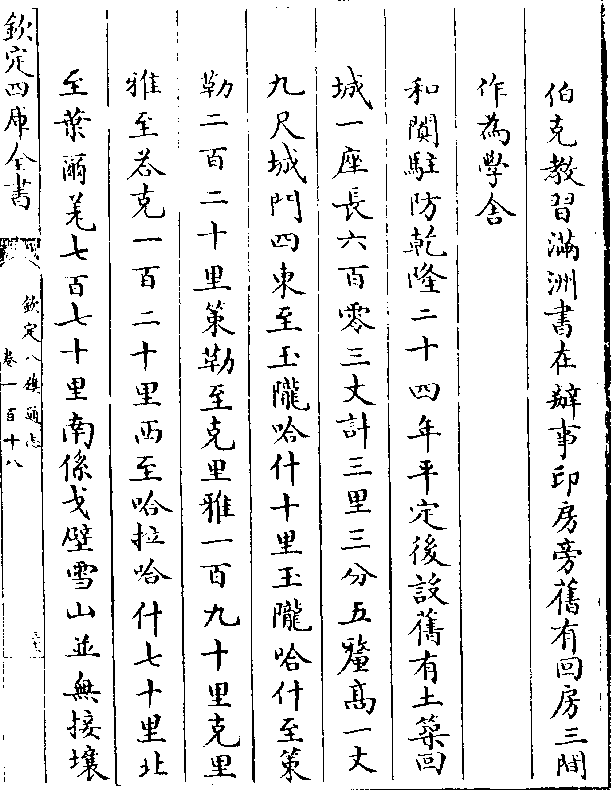 伯克教習滿洲書在辦事印房旁舊有回房三間
作為學舍
和闐駐防乾隆二十四年平定後設舊有土築回
城一座長六百零三丈計三里三分五釐高一丈
九尺城門四東至玉隴哈什十里玉隴哈什至策
勒二百二十里策勒至克里雅一百九十里克里
雅至荅克一百二十里西至哈拉哈什七十里北
至葉爾羌七百七十里南係戈壁雪山並無接壤
欽定四庫全書
欽定八旗通志
卷一百十八